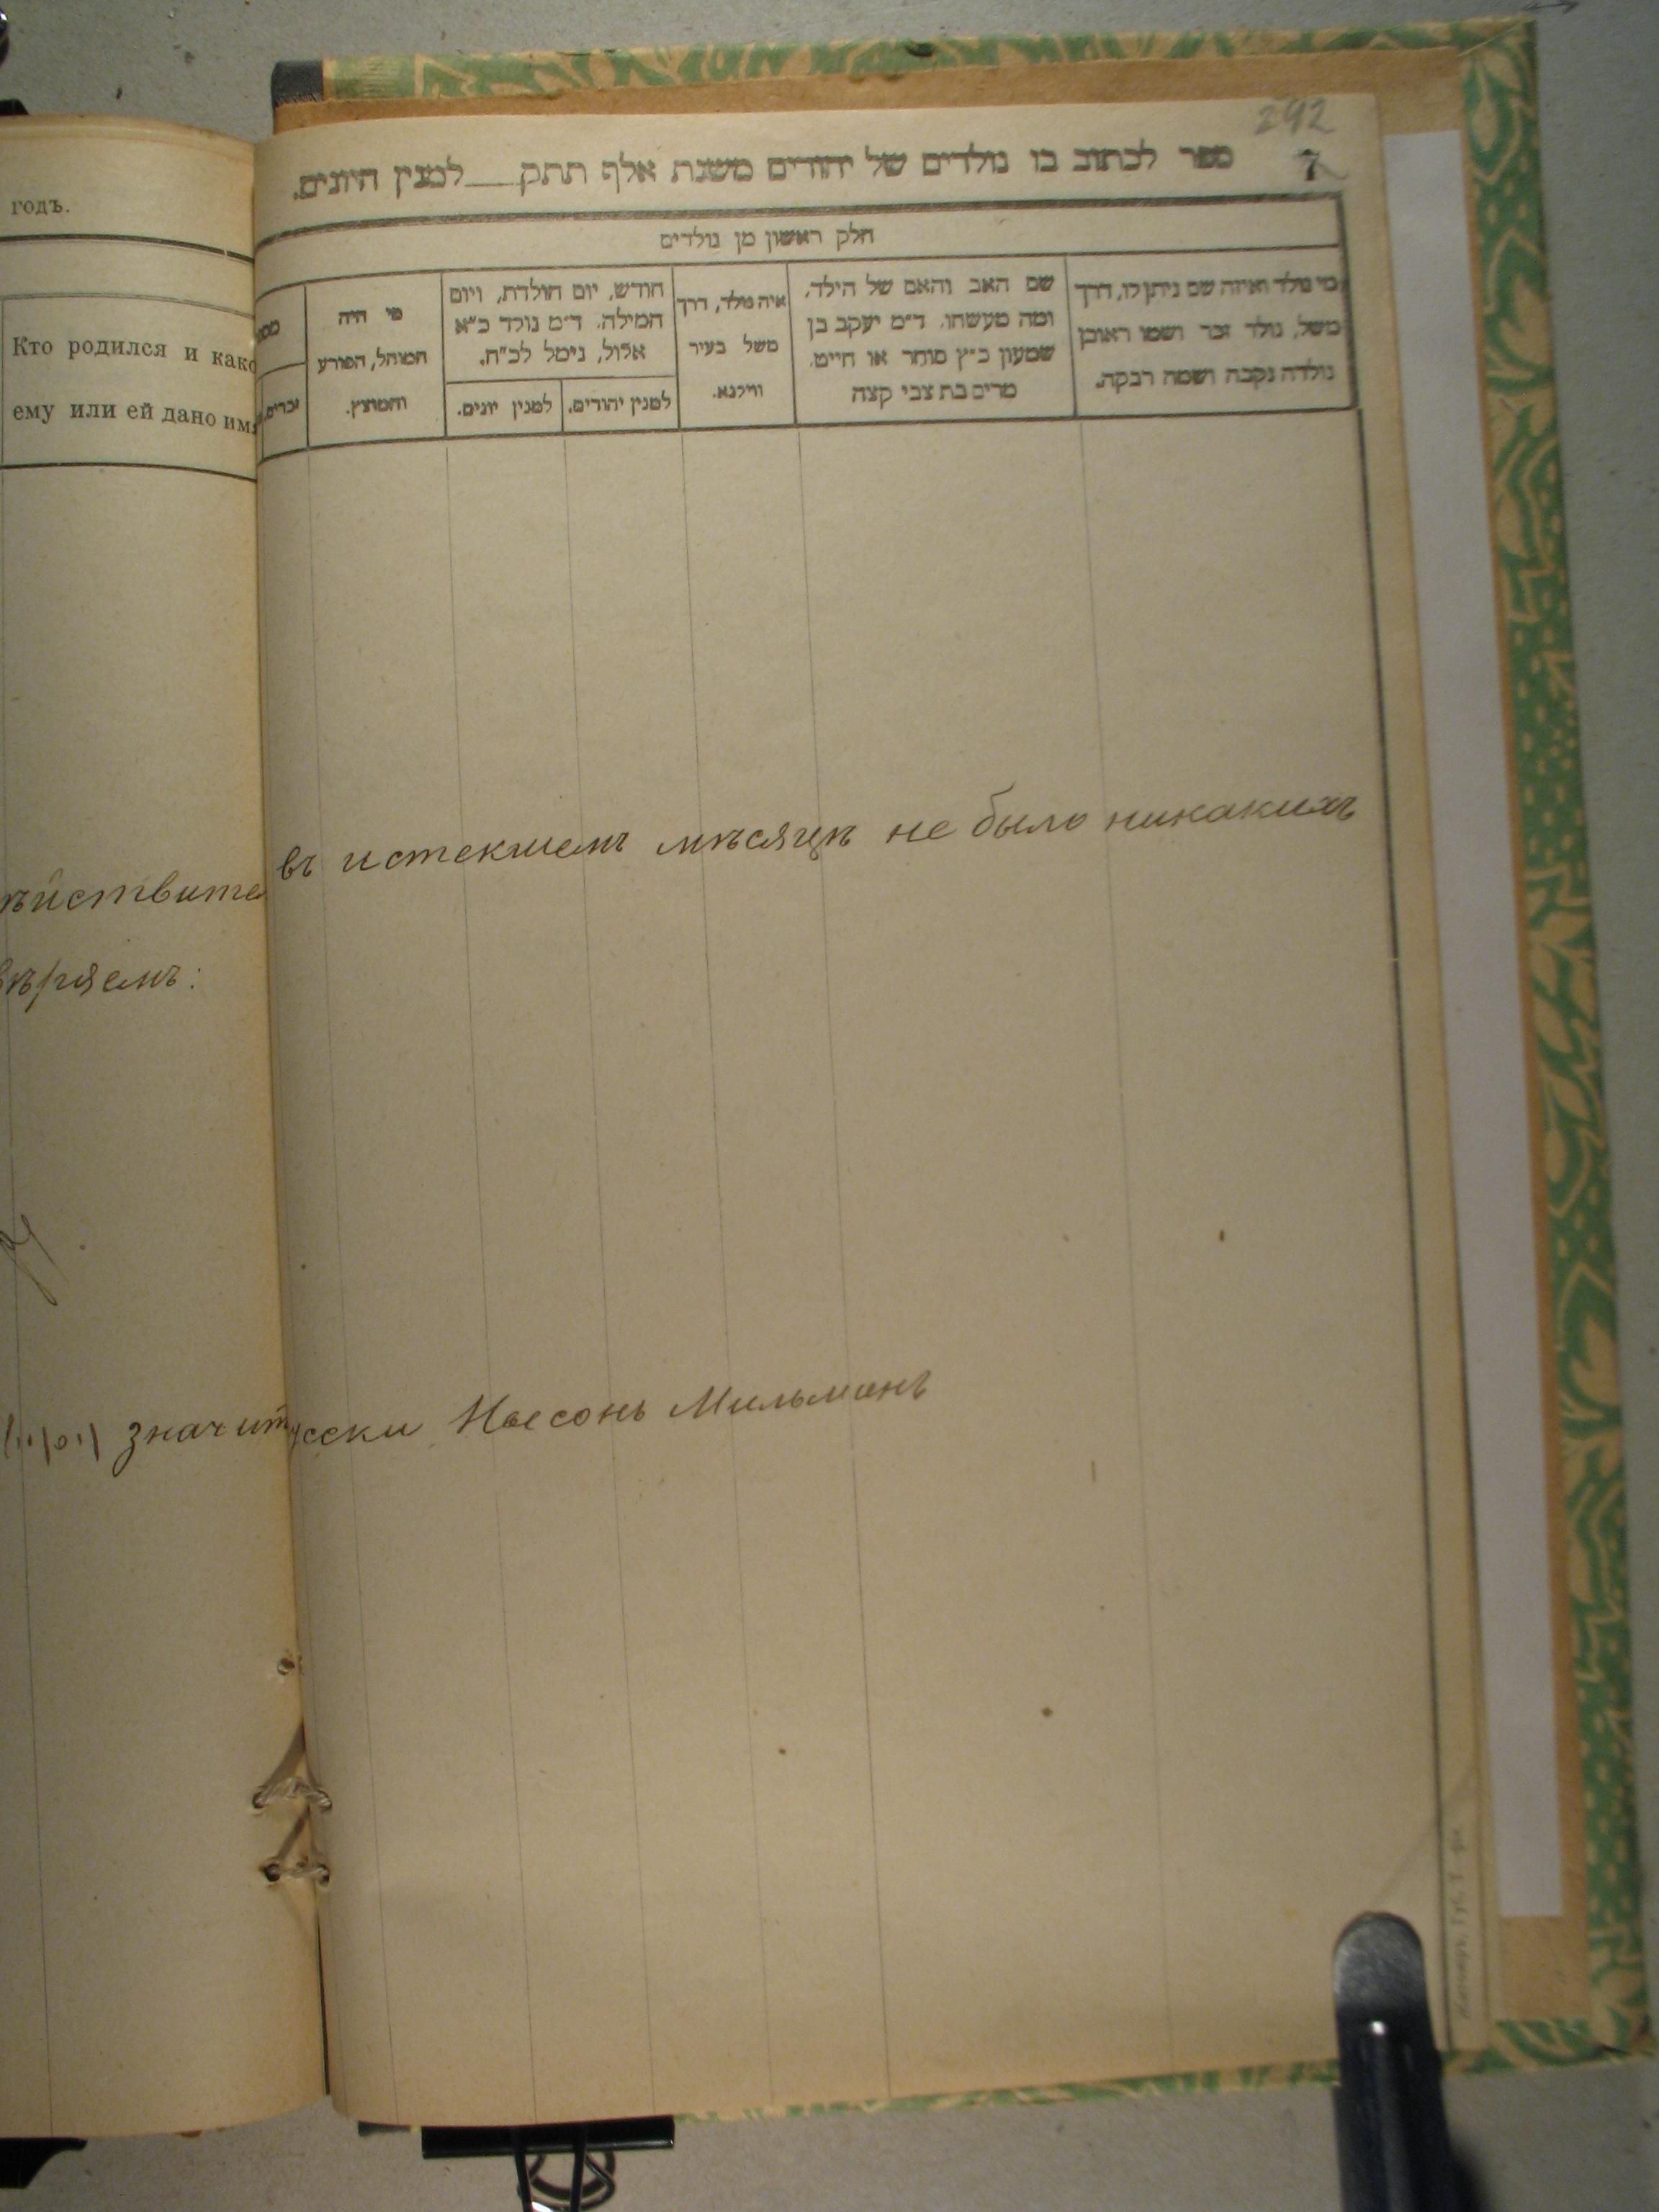 годъ.
Кто родился и како
ему или ей дано имя
ѣйствите
ѣряемъ:
значит
292
7
ספר לכתוב בו נולדים של יהודים משנת אלף תתק__למנין היונים.
חלק ראשון מן נולדים
מי נולד ואיזה שם ניתן לו, דרך
משל, נולד זכר ושמו ראובן
נולדה נקבה ושמה רבקה.
שם האב והאם של הילד,
ומה מעשהו. ד״מ יעקב בן
שמעון כ״ץ סוחר או חייט.
מרים בת צבי קצה
איה נולד, דרך
משל בעיר
ווילנא.
חודש, יום הולדת, ויום
המילה. ד״מ נולד כ״א
אלול, נימל לכ״ח.
למנין יהודים.
למנין יונים.
מי היה
המוהל, הפורע
והמוצץ.
מספ
זכרים.
въ истекшемъ мѣсяцѣ не было никакихъ
усски Носонъ Мильманъ